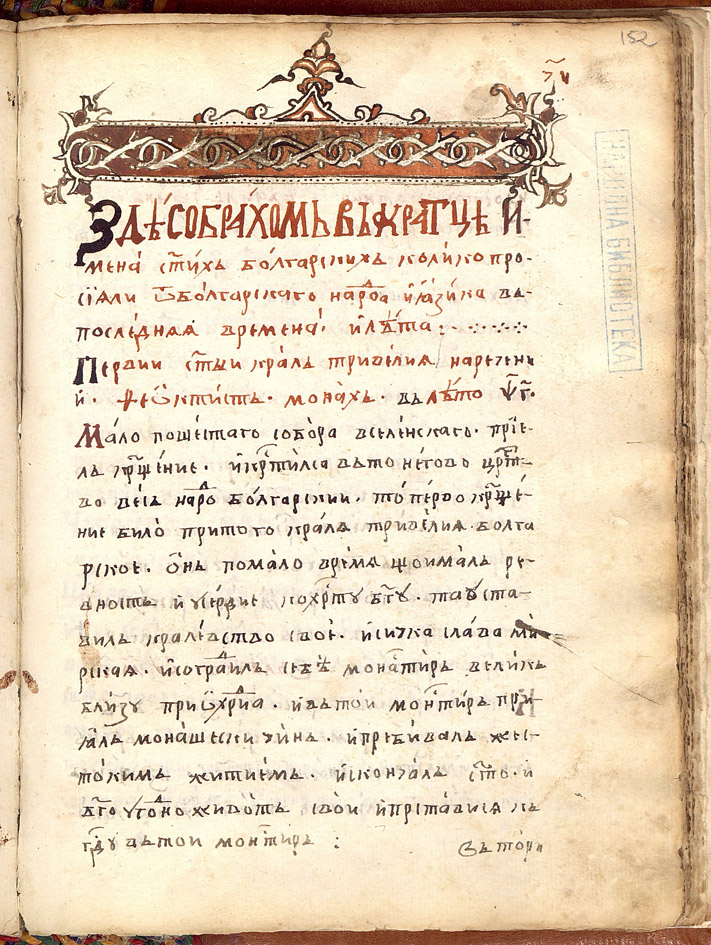 152
Здѣ собрахомь въкратцѣ и-
мена ст҃ихь болгарскихь колико про-
сїяли ѿ болгарскаго народа и язика ва-
последняя времена, и лѣта:
Перъвии ст҃ыи краль тривелия наречени
и ѳеѡктисть монахь. въ лѣто ѱ҃г.
Мало пошестаго собора вселенскаго. прїе-
ль крщ҃ение. и кртилса въ то негово црт-
во весь народ болгарскии. то перво крщ҃е-
ние било при того краля тривелия болга
рское. Ѡнь по мало время що ималь ре-
вность и усердие ко хрту бг҃у. та уста-
виль кралевство свое. и сичка слава ми
рская. и сотраиль себѣ монастирь великь
близу при ѡхрида. и въ тои монстирь при-
яль монашески чинь. и пребиваль жес-
токимь житиемь. и скончаль ст҃о. и
бг҃оугодно животь свои и преставися къ
гд҃у въ тои монстирь :
въ тори
НАРОДНА БИБЛИОТЕКА